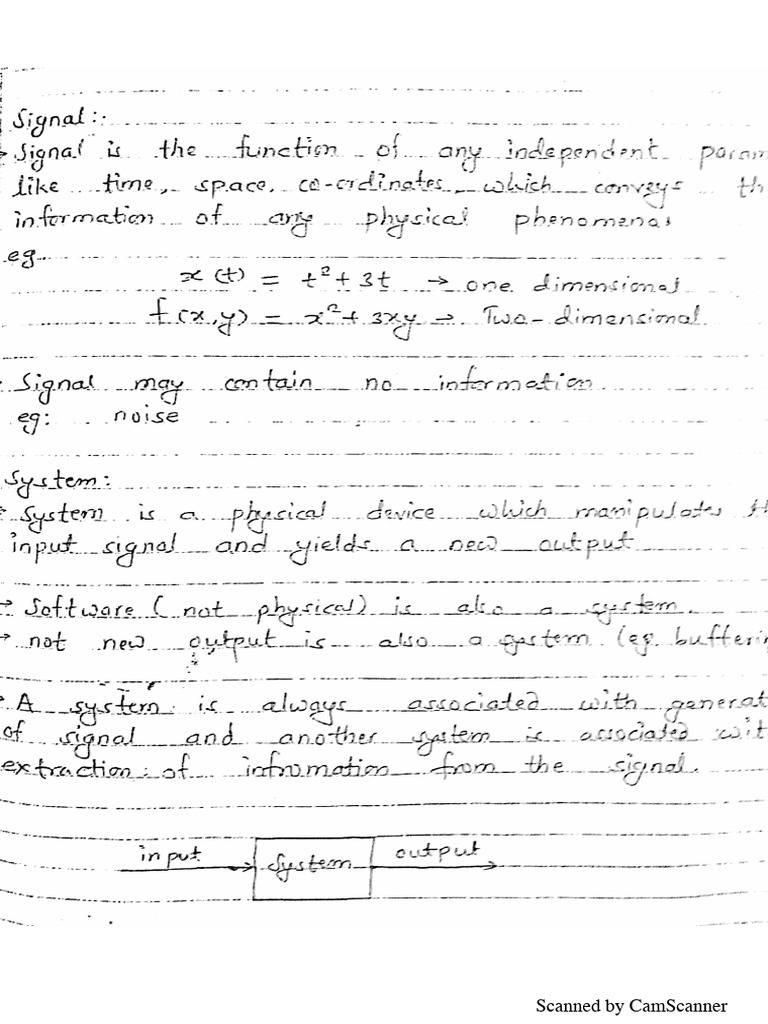 Signal:-
→ Signal is the function of any independent param
like time, space, co-ordinates, which conveys th
information of any physical phenomena.
eg.
x(t) = t² + 3t → one dimensional
f(x,y) = x² + 3xy → Two-dimensional
Signal may contain no information
eg: noise
System:
→ System is a physical device which manipulates th
input signal and yields a new output
→ Software (not physical) is also a system.
→ not new output is also a system (eg. buffering
→ A system is always associated with generat
of signal and another system is associated wit
extraction of infromation from the signal.
input System output
Scanned by CamScanner